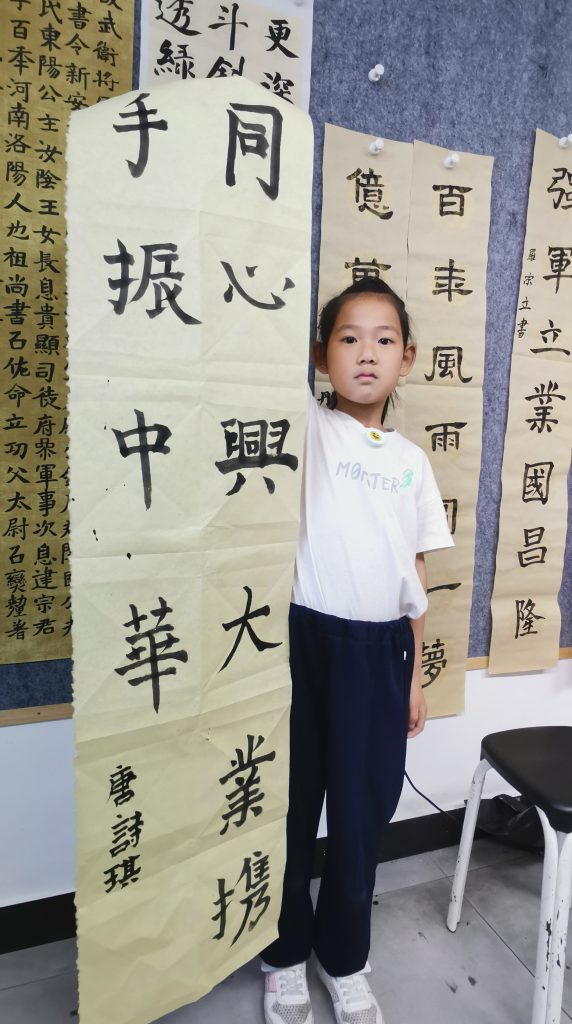 同心興大業携
手振中華
唐詩琪
強軍立業國昌隆
羅宗立書
百年風雨同一夢
億萬
更深
斗
透綠
武衛將
書令新
民東陽公主汝陰王女長息貴顯司徒府參軍事次息建宗君
百年河南洛陽人也祖尚書石佐命立功父太尉石
MONTER